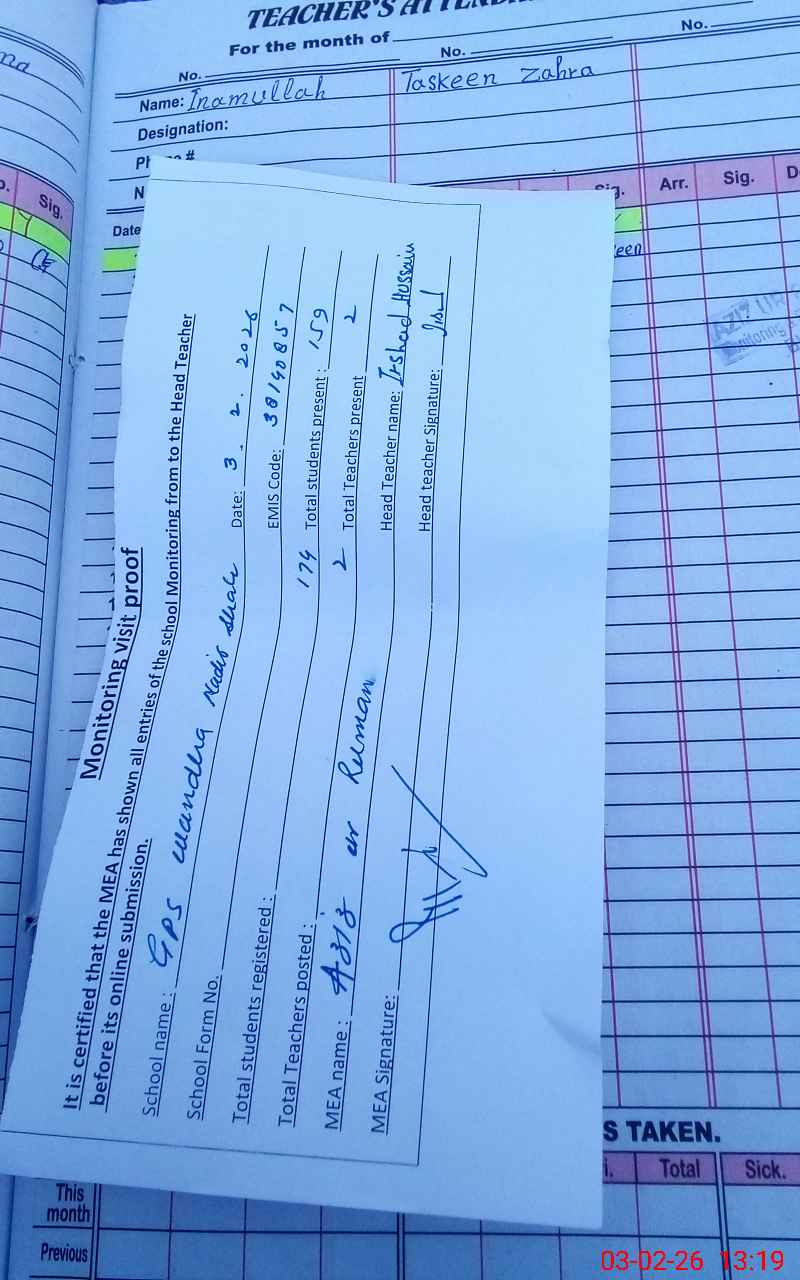 TEACHER'S ATTEND
For the month of
No. No. No.
Name: Inamullah Taskeen Zahra
Designation:
Sig.
Date
Sig. Arr. Sig.
een
Monitoring visit proof
It is certified that the MEA has shown all entries of the school Monitoring from to the Head Teacher
before its online submission.
School name: GPS Nadir Shah Date: 3. 2. 2026
School Form No. EMIS Code: 38140857
Total students registered: 174 Total students present: 159
Total Teachers posted: 2 Total Teachers present 2
MEA name: Aziz ur Rehman Head Teacher name: Irshad Hussain
MEA Signature: Head teacher Signature:
S TAKEN.
Total Sick.
This
month
Previous
03-02-26 13:19